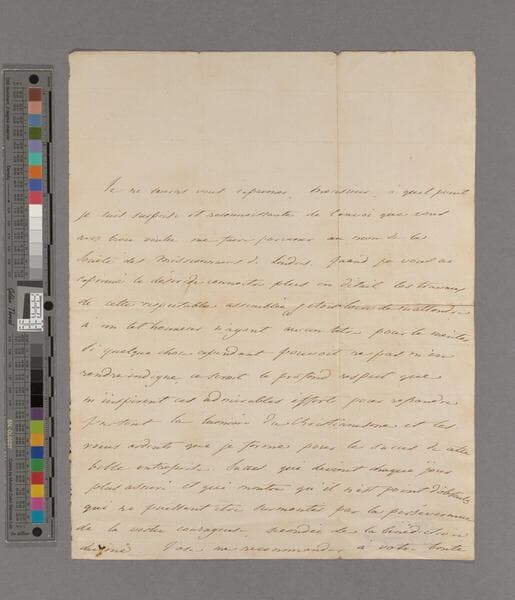 Je ne saurois vous exprimer, Monsieur, à quel point
je suis surprise et reconnoissante de l'envoi que vous
avez bien voulu me faire parvenir au nom de la
Société des Missionnaires de Londres. quand je vous ai
exprimé le désir de connoitre plus en détail les travaux
de cette respectable assemblée j'étois loin de m'attendre
à un tel honneur n'ayant aucun titre pour le mériter
si quelque chose cependant pouvoit ne pas m'en
rendre indigne, ce seroit le profond respect que
m'inspirent ces admirables efforts pour répandre
partout la lumière du Christianisme et les
vœux ardents que je forme pour le succès de cette
belle entreprise. Succès qui devient chaque jour
plus assuré et qui montre qu'il n'est point d'obstacles
qui ne puissent être surmontés par la persévérance
de la vertu courageuse, secondée de la bénédiction
divine. J'ose me recommander à votre bonté